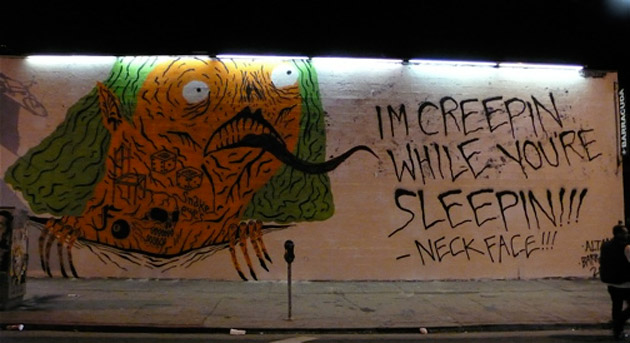 IM CREEPIN
WHILE YOU'RE
SLEEPIN!!!
- NECK FACE!!!
BARRACUDA